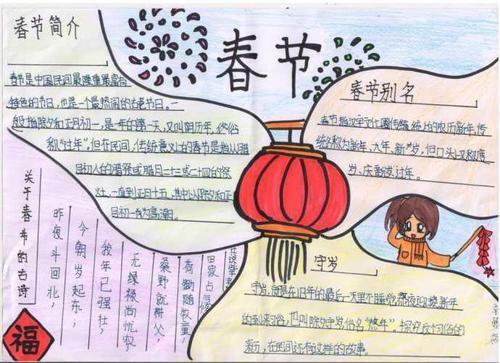 春节简介
春节是中国民间最隆重最富有
特色的节日，也是一个最热闹的古老节日，一
般指除夕和正月初一，是一年的第一天，又叫阴历年，俗称
“过年”，但在民间，传统意义上的春节是指从腊
目初八的腊祭或腊日二十三或二十四的祭
灶，一直到正月十五，其中以除夕和正
目初一为高潮
春节
春节别名
春节指汉字文化圈传统上的农历新年，传
统名称为新年、大年、新岁，但口头上又称度
岁、庆新岁、过年
关于春节的古诗
昨夜斗回北，
今朝岁起东；
我年已强壮，
无禄极尚忧农。
桑野就耕父，
荷锄随牧童；
田家占气候，
福
守岁
守岁，就是在旧年的最后一天
的到来习俗，也叫除夕守岁，俗名“熬年”，探究这个习俗的
来历，在民间还有这样的故事